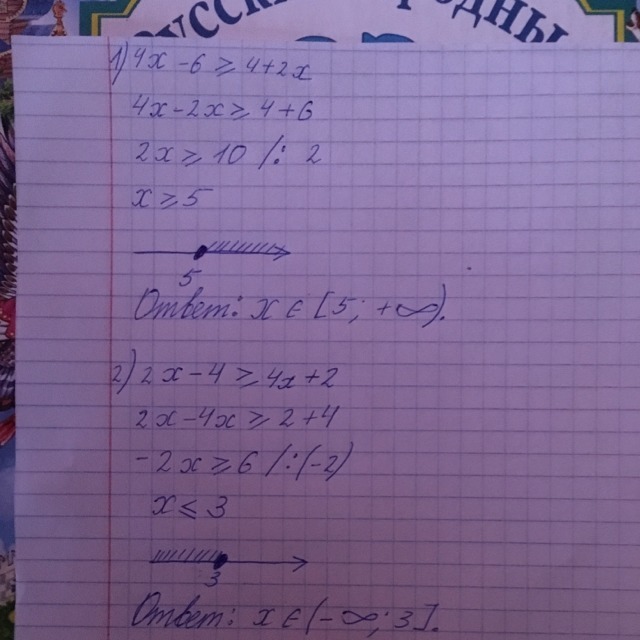 1) 4x - 6 ≥ 4 + 2x
4x - 2x ≥ 4 + 6
2x ≥ 10 /: 2
x ≥ 5
5
Ответ: x ∈ [5; +∞).
2) 2x - 4 ≥ 4x + 2
2x - 4x ≥ 2 + 4
-2x ≥ 6 /:(-2)
x ≤ 3
3
Ответ: x ∈ (-∞; 3].